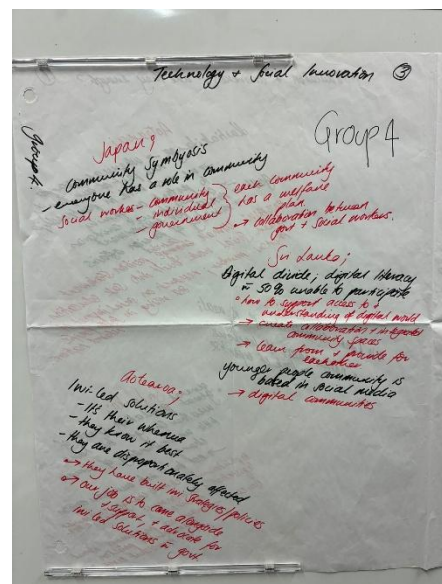 Technology + Social Innovation ③
Group 4
Group 4.
Japan;
Community Symbyosis
- everyone has a role in community
Social worker - community
- individual
- government
each community
has a welfare
plan
→ collaboration between
govt + social workers.
Sri Lanka;
Digital divide; digital literacy
50% unable to participate
how to support access to +
understanding of digital world
→ create collaboration + integrated
community
→ learn from + provide for
eachother
younger people community is
based in social media
→ digital communities
Aotearoa;
Iwi-led solutions
- It's their whenua
- they know it best
- they are disproportionately affected
→ they have built iwi strategies/policies
→ our job is to come alongside
+ support, + advocate for
iwi led solutions govt.